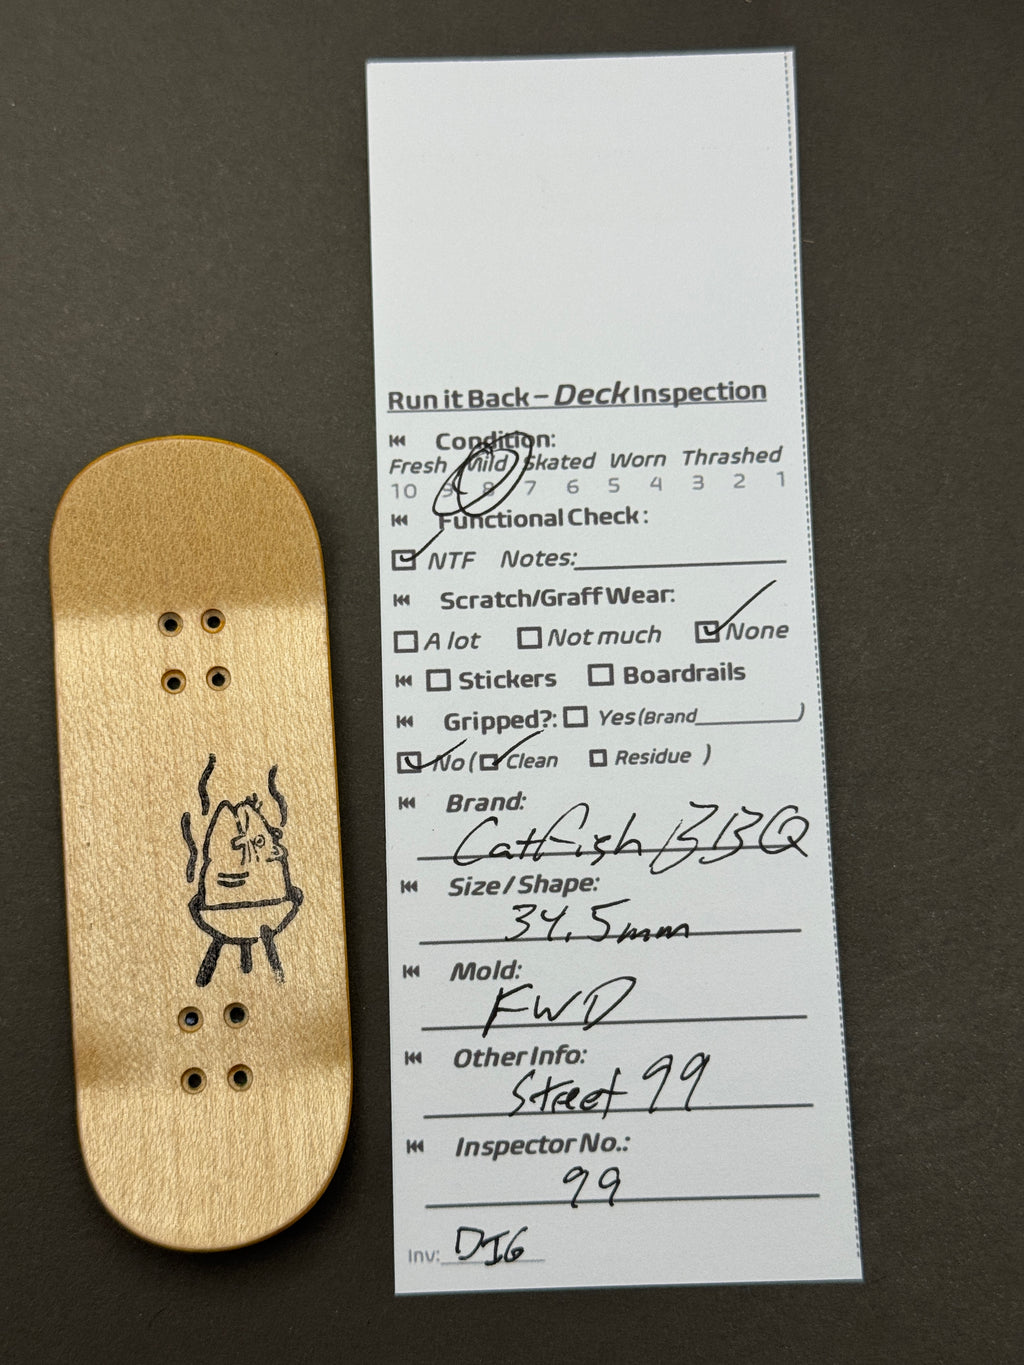 Run it Back – Deck Inspection
Condition:
Fresh Mild Skated Worn Thrashed
10 9 8 7 6 5 4 3 2 1
Functional Check:
NTF Notes:
Scratch/Graff Wear:
A lot Not much None
Stickers Boardrails
Gripped?: Yes (Brand )
No ( Clean Residue )
Brand:
Catfish BBQ
Size / Shape:
34.5mm
Mold:
FWD
Other Info:
Street 99
Inspector No.:
99
Inv: DIG